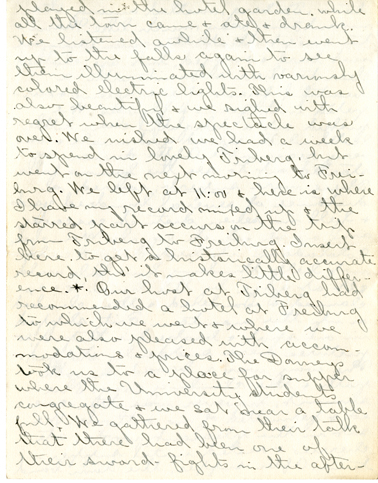 played in the hotel garden while
all the town came & ate & drank.
We listened awhile & then went
up to the falls again to see
them illuminated with variously
colored electric lights. This was
also beautiful & we sighed with
regret when the spectacle was
over. We wished we had a week
to spend in lovely Triberg, but
went on the next morning to Frei-
burg. We left at 11:00 & here is where
I have my record mixed up & the
starred part occurs on the trip
from Triberg to Freiburg. Insert
here to get a historically accurate
record, tho' it makes little differ-
ence. *. Our host at Triberg had
recommended a hotel at Freiburg
to which we went & where we
were also pleased with accom-
modations & prices. The
took us to a place for supper
where the University students
congregate & we sat near a table
full. We gathered from their talk
that there had been one of
their sword-fights in the after-